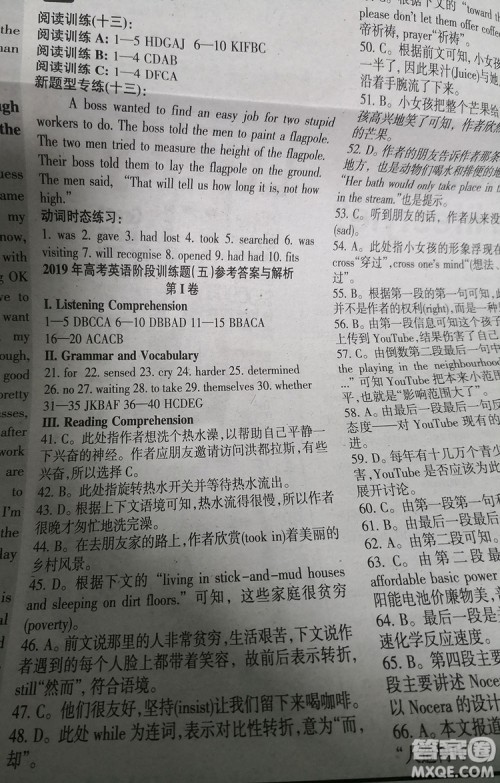 阅读训练(十三):
阅读训练 A: 1—5 HDGAJ 6—10 KIFBC
阅读训练 B: 1—4 CDAB
阅读训练 C: 1—4 DFCA
新题型专练(十三):
A boss wanted to find an easy job for two stupid
workers to do. The boss told the men to paint a flagpole.
The two men tried to measure the height of the flagpole.
Their boss told them to lay the flagpole on the ground.
The men said, "That will tell us how long it is, not how
high."
动词时态练习:
1. was 2. gave 3. had lost 4. took 5. searched 6. was
visiting 7. will recognise 8. opened 9. had had 10. fits
2019年高考英语阶段训练题(五)参考答案与解析
第Ⅰ卷
I. Listening Comprehension
1—5 DBCCA 6—10 DBBAD 11—15 BBACA
16—20 ACACB
II. Grammar and Vocabulary
21. for 22. sensed 23. cry 24. harder 25. determined
26. no 27. waiting 28. to take 29. themselves 30. whether
31—35 JKBAF 36—40 HCDEG
III. Reading Comprehension
41. C。此处指作者想洗个热水澡,以帮助自己平静一
下兴奋的神经。作者应朋友邀请访问洪都拉斯,有些
兴奋,所以选择C。
42. B。此处指旋转热水开关并等待热水流出。
43. D。根据上下文语境可知,热水流得很慢,所以作者
很晚才匆忙地洗完澡。
44. B。在去朋友家的路上,作者欣赏(took in)着美丽的
乡村风景。
45. D。根据下文的"living in stick-and-mud houses
and sleeping on dirt floors."可知,这些家庭很贫穷
(poverty)。
46. A。前文说那里的人非常贫穷,生活艰苦,下文说作
者遇到的每个人脸上都带着笑容,故前后表示转折,
still"然而",符合语境。
47. C。他们很友好,坚持(insist)让我们留下来喝咖啡。
48. D。此处while为连词,表示对比性转折,意为"而,
却"。
the
man
ugh
the
my
now,
with
g OK
my
ough,
good
pretty
asses,
after
work
are
I'm
play
is
and
the
"toward
please don't let them offer coffee
帝祈祷, prayer"祈祷"。
50. C。根据前文可知,小女孩
了一个,因此果汁(Juice)与她
沿着手腕流了下来。
51. B。小女孩把整个芒果给
孩高兴地笑了可知,作者欣
的芒果。
52. D。作者的朋友告诉作者那条
地方,也是动物们喝水和排便的地
"Her bath would only take place in
in the stream."也是提示。
53. C。听到朋友的话,作者从来没
(sad)。
54. A。此处指小女孩的形象浮现在
cross"穿过", cross one's mind"(想
过"。
55. B。根据第一段的第一句可知,此
并不是作者的权利(right),而是一种
56. B。由第一段信息可知这个孩子
上传到 YouTube,结果伤害了自己
57. C。由倒数第二段最后一句中
the playing in the neighbourhood
..."可知 YouTube 把本来小范围
平,也就是"影响范围大了"。
58. A。由最后一段最后一句反
态度——对 YouTube 现有的
进。
59. D。每年有十几万个青少
害,YouTube是否应该为此
展开讨论。
60. C。由第一段第一句和
61. B。由最后一段最后一
62. A。由第二段可知。
63. C。由第二段最
affordable basic power
阳能电池价廉物美,
64. B。由第二段中
速化学反应速度。
65. B。第四段主要
段主要讲述 Nocera
以 Nocera 的设计
66. A。本文报道
"人造树
答案圈
MXQE.COM